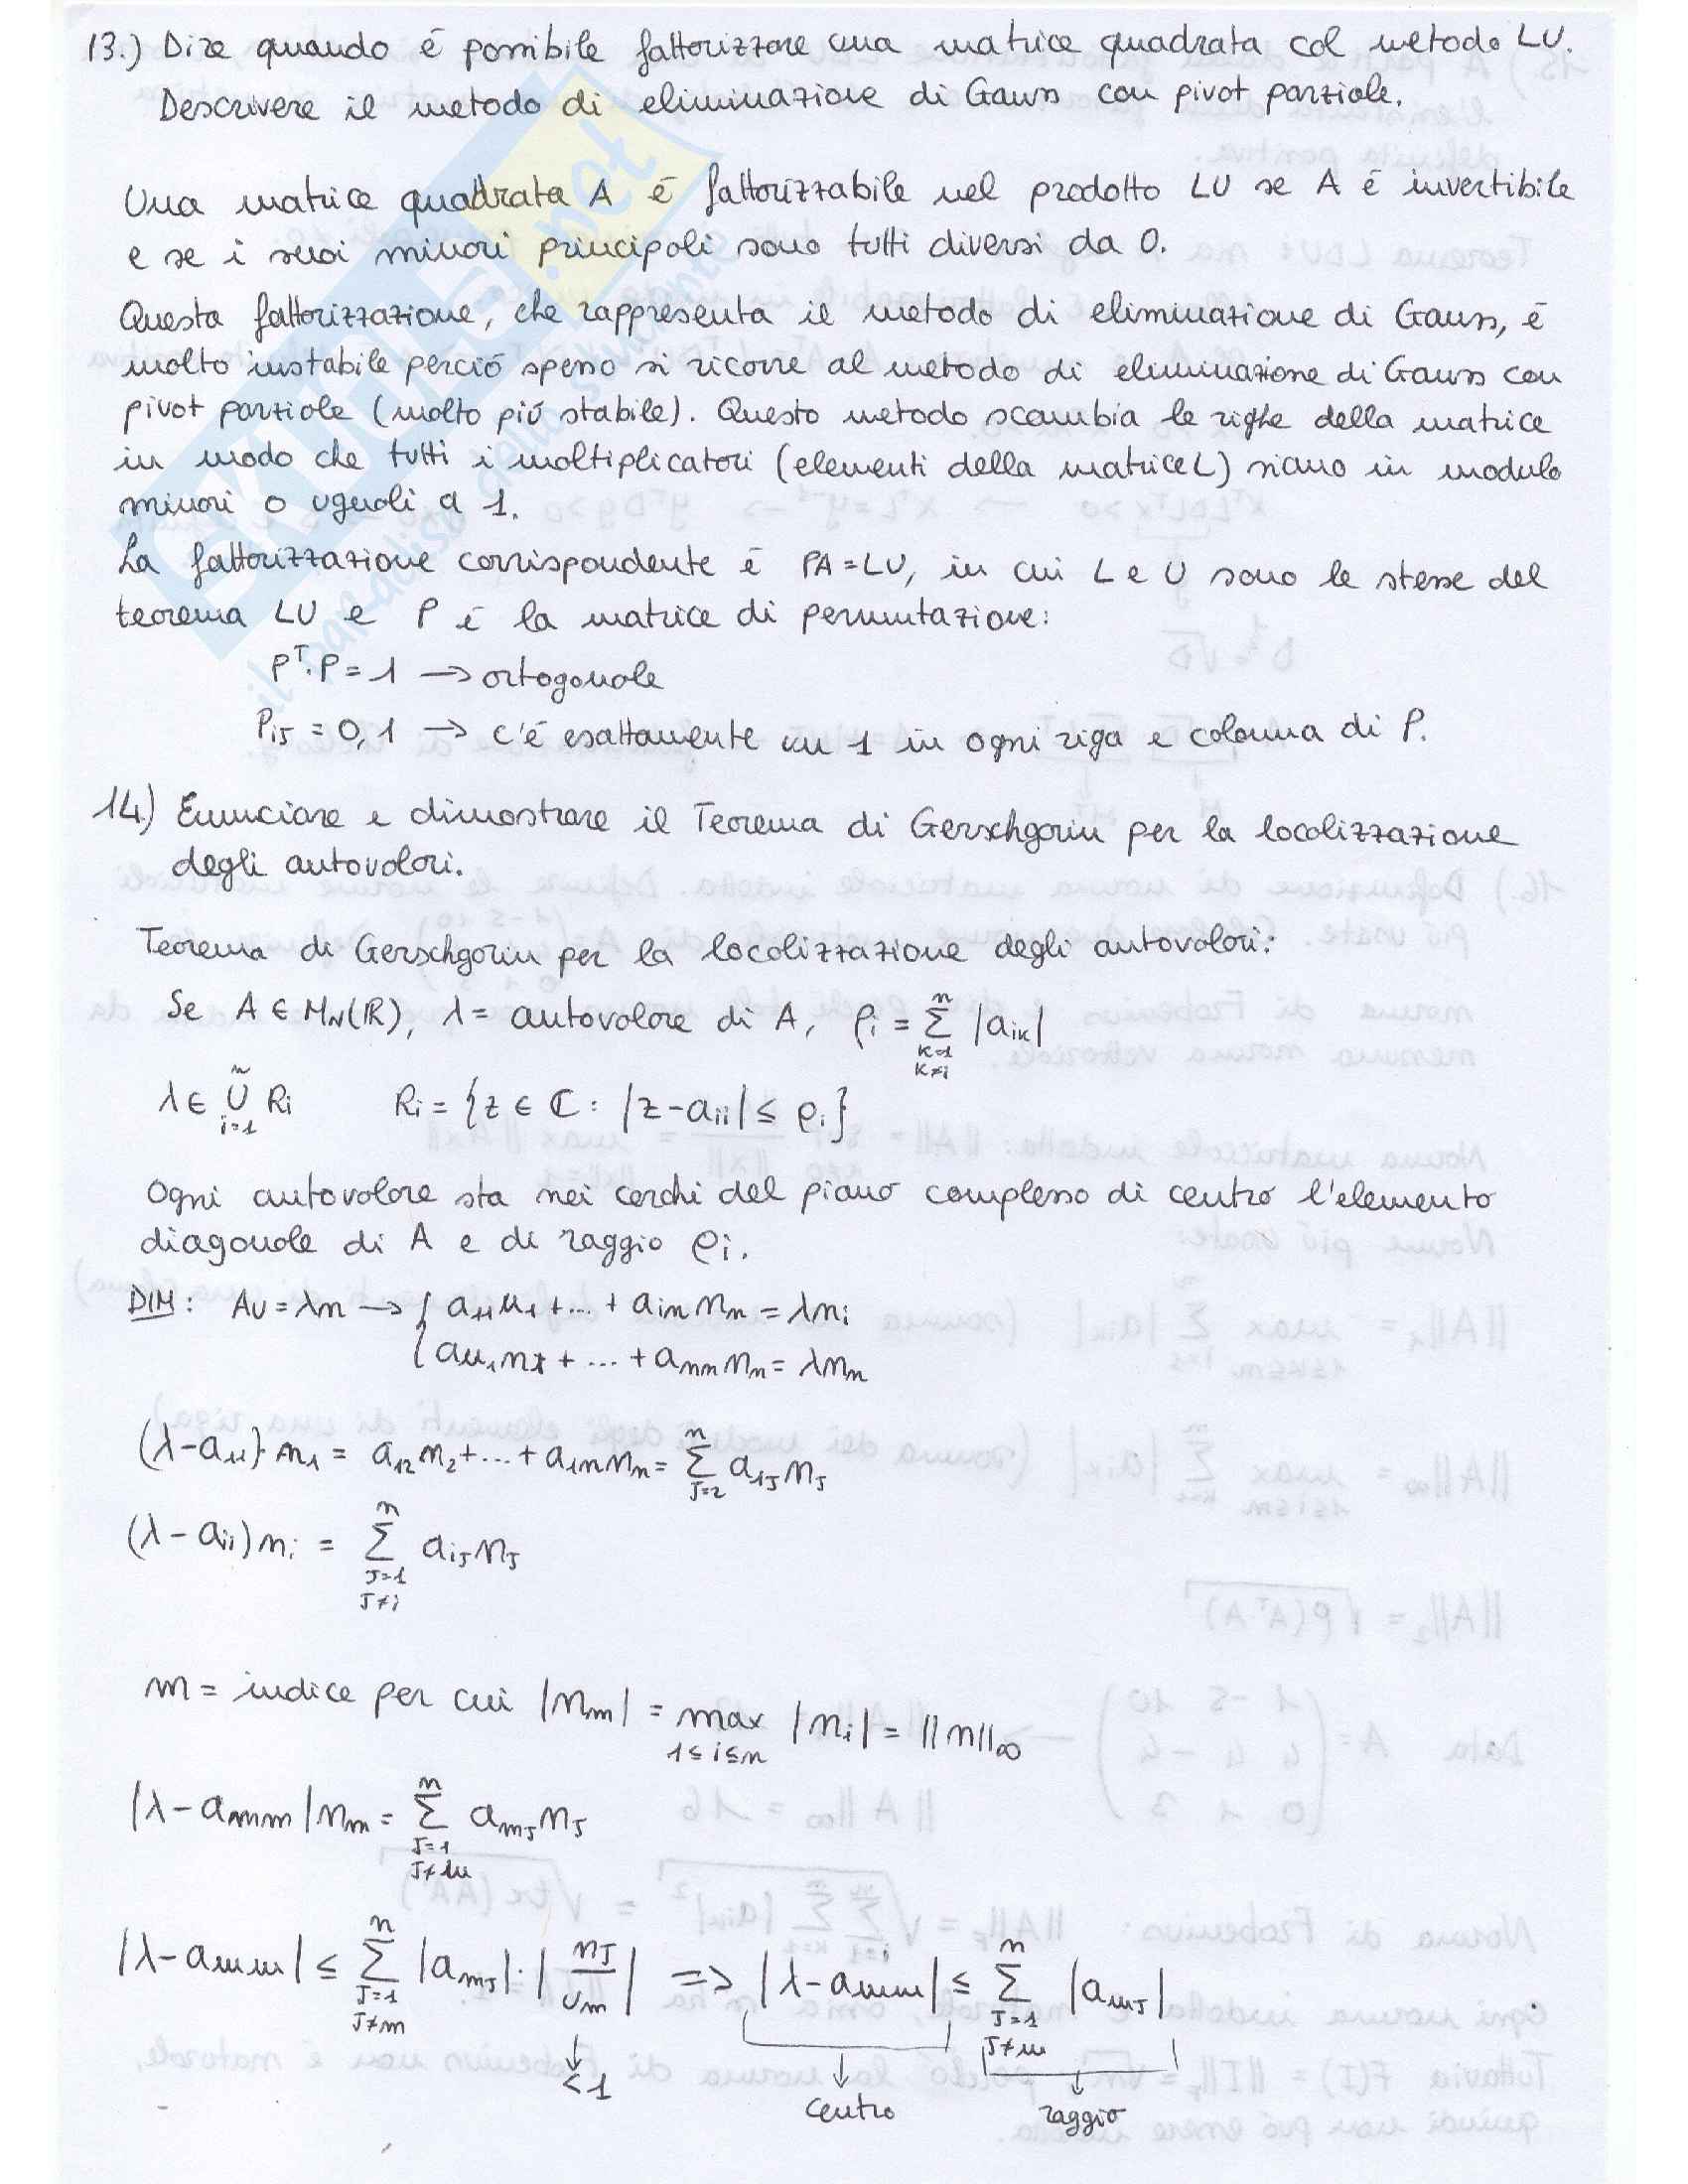 13.) Dire quando é possibile fattorizzare una matrice quadrata col metodo LU.
Descrivere il metodo di eliminazione di Gauss con pivot parziale.
Una matrice quadrata A é fattorizzabile nel prodotto LU se A é invertibile
e se i suoi minori principali sono tutti diversi da 0.
Questa fattorizzazione, che rappresenta il metodo di eliminazione di Gauss, é
molto instabile perció spesso si ricorre al metodo di eliminazione di Gauss con
pivot parziale (molto piú stabile). Questo metodo scambia le righe della matrice
in modo che tutti i moltiplicatori (elementi della matrice L) siano in modulo
minori o uguali a 1.
La fattorizzazione corrispondente é PA=LU, in cui L e U sono le stesse del
teorema LU e P é la matrice di permutazione:
P^T·P=1 → ortogonale
P_ij = 0,1 → c'é esattamente un 1 in ogni riga e colonna di P.
14.) Enunciare e dimostrare il Teorema di Gerschgorin per la localizzazione
degli autovalori.
Teorema di Gerschgorin per la localizzazione degli autovalori:
Se A ∈ M_N(ℝ), λ = autovalore di A, ρ_i = Σ_{k=1, k≠i}^{n} |a_ik|
λ ∈ ∪_{i=1}^{n} R_i R_i = {z ∈ ℂ: |z-a_ii| ≤ ρ_i}
Ogni autovalore sta nei cerchi del piano complesso di centro l'elemento
diagonale di A e di raggio ρ_i.
DIM: Au = λu → { a_11 u_1 + ... + a_1n u_n = λu_i
{ a_n1 u_1 + ... + a_nn u_n = λu_n
(λ-a_11)·u_1 = a_12 u_2 + ... + a_1n u_n = Σ_{J=2}^{n} a_1J u_J
(λ-a_ii) u_i = Σ_{J=1, J≠i}^{n} a_iJ u_J
m = indice per cui |u_m| = max_{1≤i≤n} |u_i| = ||u||_∞
|λ-a_mm| u_m = Σ_{J=1, J≠m}^{n} a_mJ u_J
|λ-a_mm| ≤ Σ_{J=1, J≠m}^{n} |a_mJ|·|u_J/u_m| => |λ-a_mm| ≤ Σ_{J=1, J≠m}^{n} |a_mJ|
<1
centro raggio